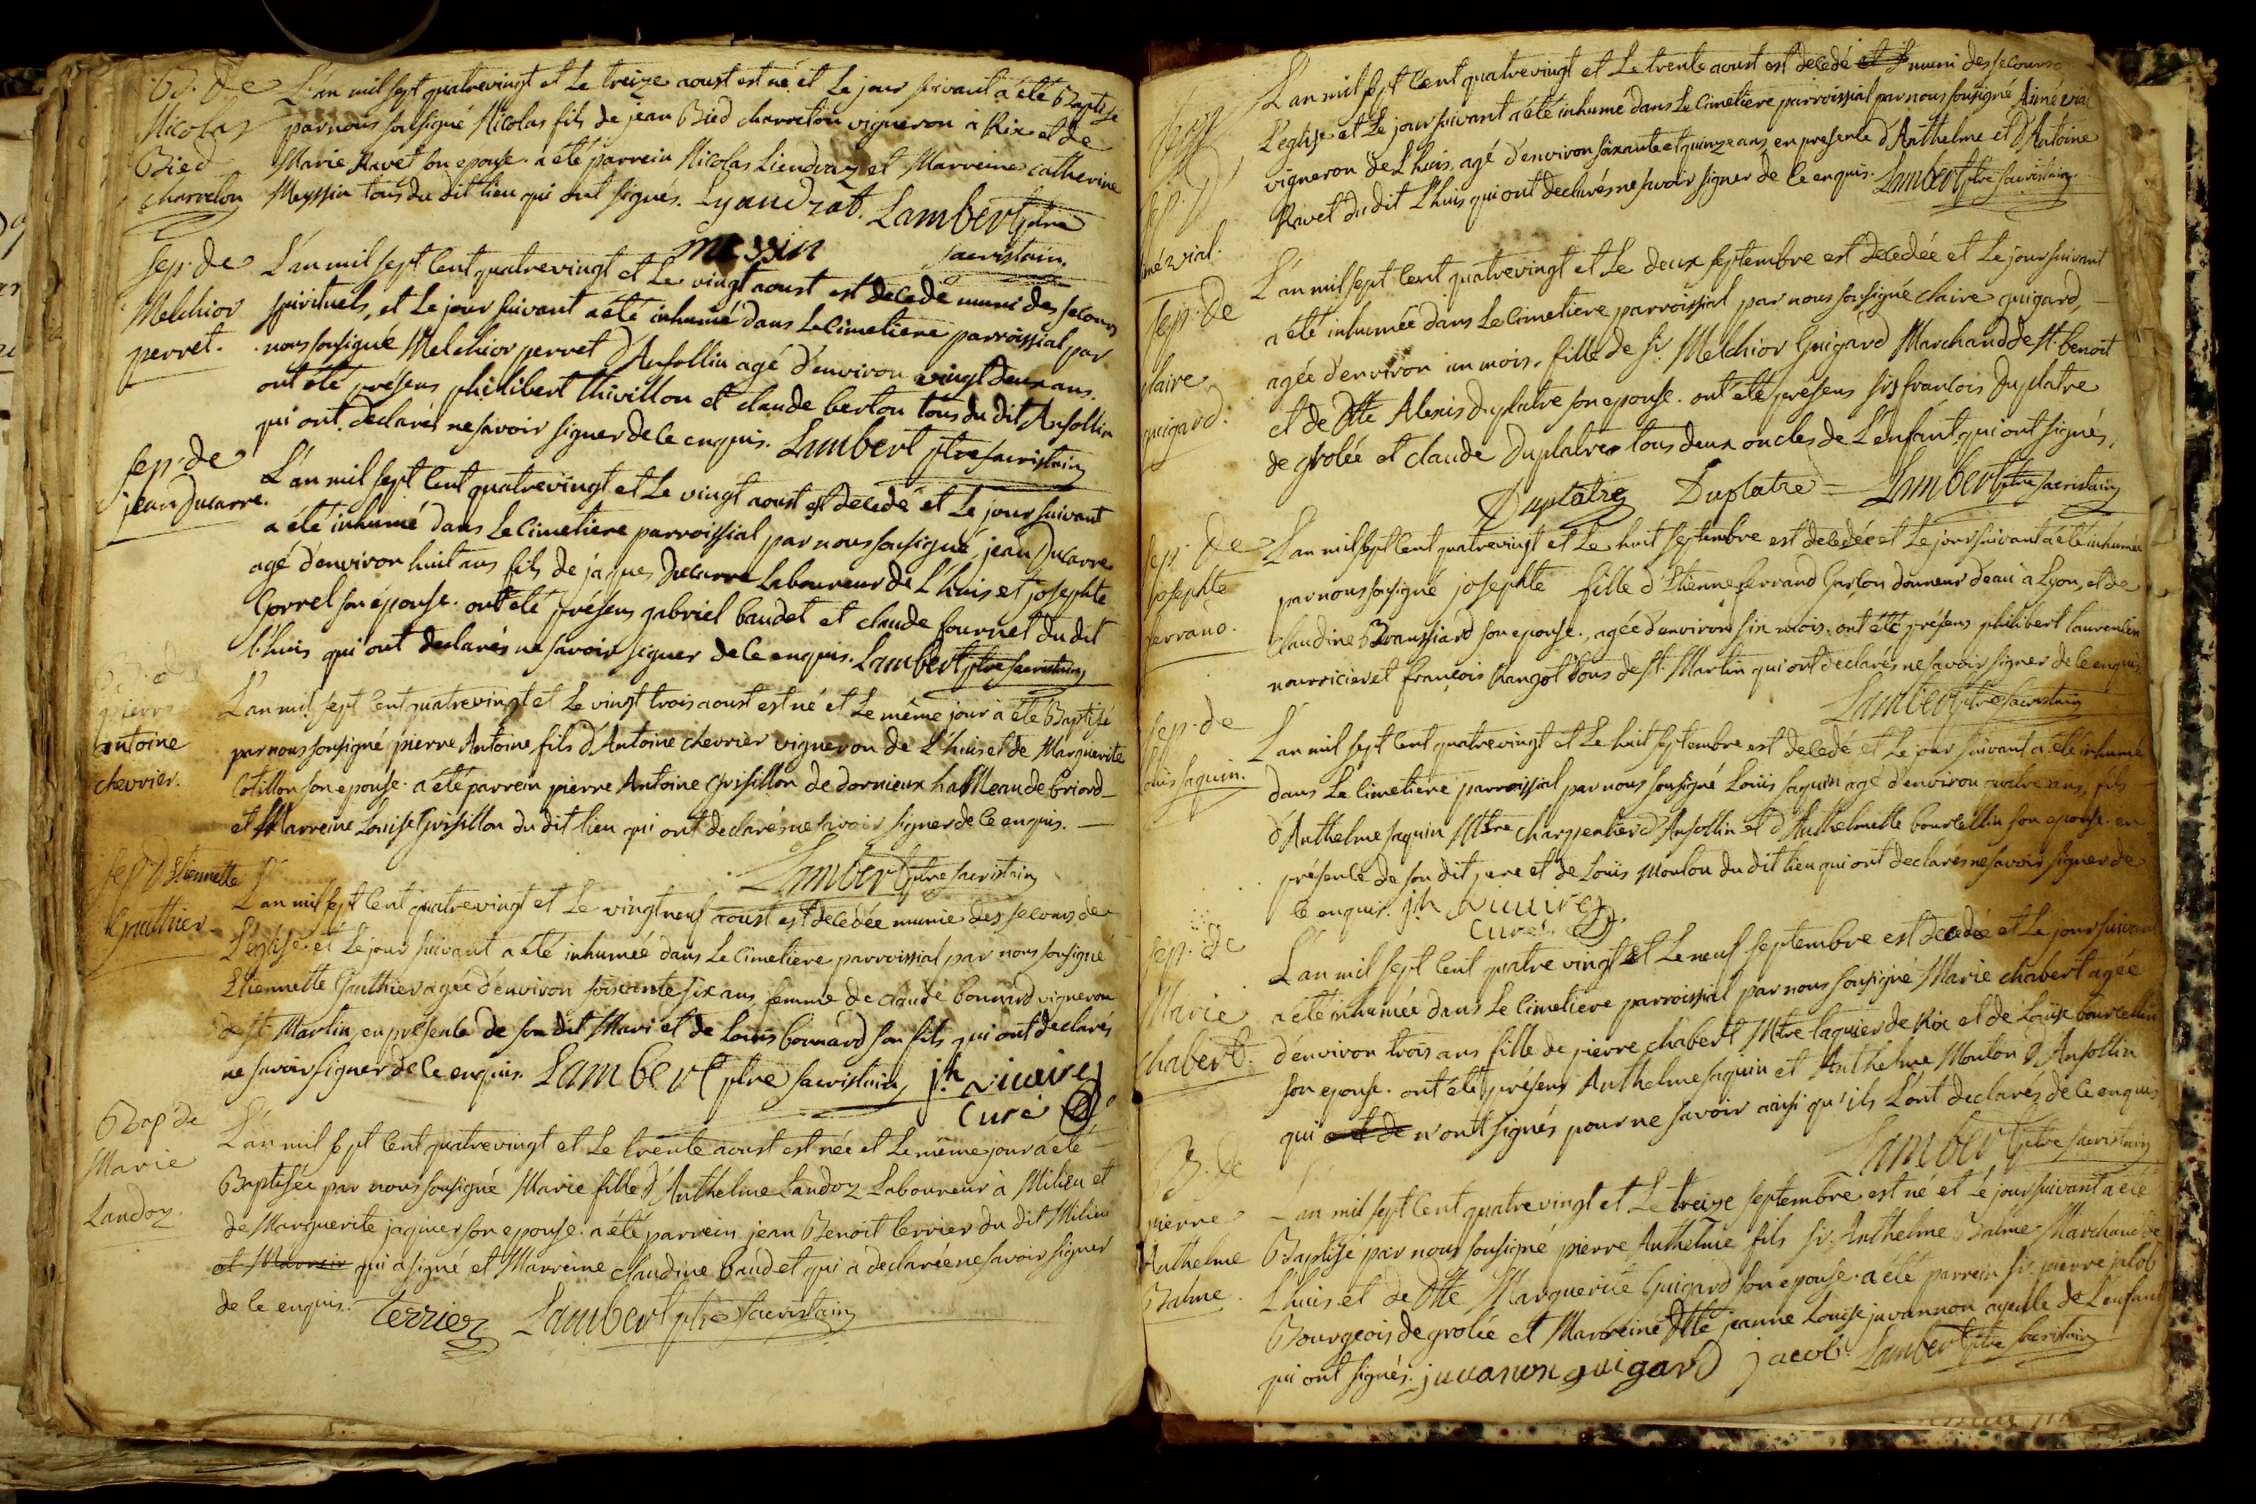 B. de
Nicolas
Bied
charreton
L'an mil sept quatrevingt et Le treize aoust est né et Le jour suivant a été Baptisé
par nous sousigné Nicolas fils de jean Bied charreton vigneron a Rix et de
Marie Ravet son epouse. a été parrein Nicolas Liendraz et Marreine catherine
Meyssin tous du dit lieu qui ont signés. Lyandrat. Lambert ptre
messin sacristain.
sep. de
Melchior
perret.
L'an mil sept Cent quatrevingt et Le vingt aoust est decedé muni des secours
spirituels, et Le jour suivant a été inhumé dans Le Cimetiere parroissial par
nous sousigné Melchior perret d'Ansollin agé d'environ vingt deux ans.
ont été présens philibert thivillon et claude berton tous du dit Ansollin
qui ont declarés ne savoir signer de Ce enquis. Lambert ptre sacristain
sep. de
jean Ducarre.
L'an mil sept Cent quatrevingt et Le vingt aoust est decedé et Le jour suivant
a été inhumé dans Le Cimetiere parroissial par nous sousigné, jean Ducarre
agé d'environ huit ans fils de jaques Ducarre Laboureur de L'huis et josephte
Gorrel son épouse. ont été présens gabriel baudet et claude fournet du dit
l'huis qui ont declarés ne savoir signer de Ce enquis. Lambert ptre sacristain
pierre
antoine
chevrier.
L'an mil sept Cent quatrevingt et Le vingt trois aoust est né et Le même jour a été Baptisé
par nous sousigné pierre Antoine fils d'Antoine chevrier vigneron de L'huis et de Marguerite
Cotillon son epouse. a été parrein pierre Antoine Grisillon de dornieux hameau de briord
et Marreine Louise Grisillon du dit lieu qui ont declarés ne savoir signer de Ce enquis.
Lambert ptre sacristain
sep d'Etiennette
Gauthier
L'an mil sept Cent quatrevingt et Le vingt neuf aoust est decedée munie des secours de
L'église et Le jour suivant a été inhumée dans Le Cimetiere parroissial par nous sousigné
Etiennette Gauthier agée d'environ soixante six ans femme de claude bonnard vigneron
de st. Martin, en présence de son dit Mari et de Louis bonnard son fils qui ont declarés
ne savoir signer de Ce enquis. Lambert ptre sacristain jh vuaire
Curé
Bap de
Marie
Landoz.
L'an mil sept Cent quatrevingt et Le trente aoust est née et Le même jour a été
Baptisée par nous sousigné Marie fille d'Anthelme Landoz Laboureur à Milieu et
de Marguerite jaginer son epouse. a été parrein jean Benoit terrier du dit Milieu
et Marrein qui a signé et Marreine claudine baudet qui a declarée ne savoir signer
de Ce enquis. Terrier Lambert ptre Sacristain
sep. d'
Aimé vial.
L'an mil sept Cent quatrevingt et Le trente aoust est decedé muni des secours
L'eglise et Le jour suivant a été inhumé dans Le Cimetiere parroissial par nous sousigné Aimé vial
vigneron de L'huis, agé d'environ soixante et quinze ans, en presence d'Anthelme et d'Antoine
Ravet du dit L'huis qui ont declarés ne savoir signer de Ce enquis. Lambert ptre sacristain
sep. de
claire
guigard.
L'an mil sept Cent quatrevingt et Le deux septembre est decedée et Le jour suivant
a été inhumée dans Le Cimetiere parroissial par nous sousigné claire guigard,
agée d'environ un mois, fille de sr. Melchior Guigard Marchand de st. benoit
et de Dlle Alexis duplatre son epouse. ont été présens srs francois Duplatre
de grolée et claude Duplatre tous deux oncles de L'enfant, qui ont signés.
Duplatre Duplatre Lambert ptre sacristain
sep. de
josephte
ferrand.
L'an mil sept Cent quatrevingt et Le huit septembre est decedée et Le jour suivant a été inhumée
par nous sousigné josephte fille d'Etienne ferrand Garçon donneur d'eau à Lyon, et de
claudine Branssiard son epouse, agée d'environ six mois. ont été présens philibert laurencin
nourricier et françois hangot tous de st. Martin qui ont declarés ne savoir signer de Ce enquis
Lambert ptre sacristain
sep. de
Louis saquin.
L'an mil sept Cent quatrevingt et Le huit septembre est decedé et Le jour suivant a été inhumé
dans Le Cimetiere parroissial par nous sousigné Louis saquin agé d'environ quatre ans, fils
d'Anthelme saquin Mtre charpentier d'Ansollin et d'Anthelmette bourcellin son epouse. en
présence de son dit pere et de Louis Monlon du dit lieu qui ont declarés ne savoir signer de
Ce enquis. jh vuaire
Curé.
sep. de
Marie
chabert.
L'an mil sept Cent quatre vingt et Le neuf septembre est decedée et Le jour suivant
a été inhumée dans Le Cimetiere parroissial par nous sousigné Marie chabert agée
d'environ trois ans fille de pierre chabert Mtre taquier de Rix et de Louise bourcellin
son epouse. ont été présens Anthelme saquin et Anthelme Monlon d'Ansollin
qui n'ont signés pour ne savoir ainsi qu'ils L'ont declarés de Ce enquis
Lambert ptre sacristain
B. de
pierre
Anthelme
Balme.
L'an mil sept Cent quatrevingt et Le treize septembre est né et Le jour suivant a été
Baptisé par nous sousigné pierre Anthelme fils sr. Anthelme Balme Marchand de
L'huis et de Dlle Marguerite Guigard son epouse. a été parrein sr. pierre jacob
Bourgeois de grolée et Marreine Dlle jeanne Louise juvannon ayeule de L'enfant
qui ont signés. juuanon guigard jacob. Lambert ptre sacristain